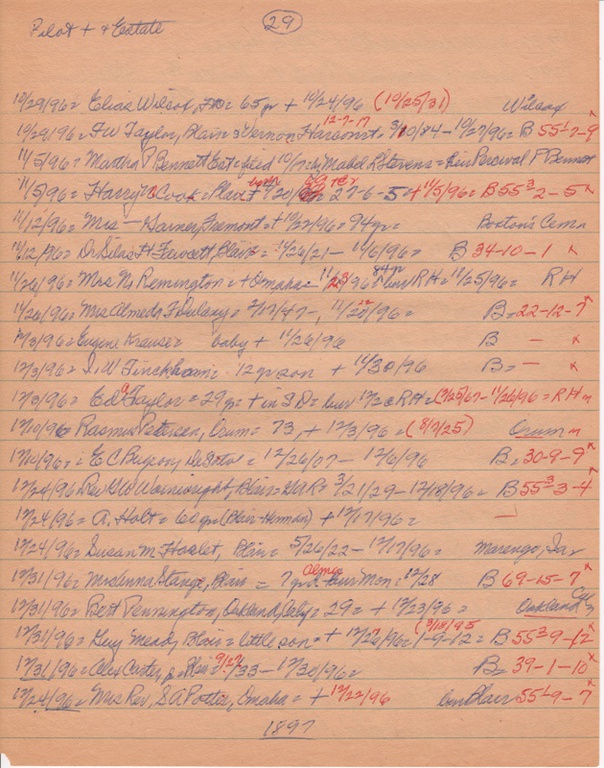 29
Pilot + & Estate
10/29/96 = Elias Wilcox, = 65 yr + 10/24/96 (10/25/31) Wilcox
12-7-17
10/29/96 = F W Taylor, Blair & Vernon Harcourt = 3/10/84 - 10/27/96 = B 55 1-7-9 x
11/5/96 = Martha P Bennett Est = filed 10/7 by Mabel L Stevens = heir Percival P Bennett
11/5/96 = Harry C Cook = Blair born 27-6-5 + 11/5/96 = B 55 3-2-5 x
11/12/96 = Mrs — Garner, Fremont = + 94 yr = Boston's Cem
11/12/96 = Dr Silas H Fawcett, Blair = 11/26/21 - 11/6/96 = B 34-10-1 x
84 yr
11/26/96 = Mrs N Remington = + Omaha - 11/23/96 bur RH = 11/25/96 = R H
11/26/96 = Mrs Almeda F Dulany = 2/17/47 -, 11/20/96 = B = 22-12-7 x
12/3/96 = Eugene Krause = baby + 11/26/96 B - x
12/3/96 = W Tinckham = 12 yr son + 11/30/96 B = - x
12/3/96 = Ed Taylor = 29 yr + in S D = bur RH = (7/25/67 - 11/26/96 = R H
12/10/96 Rasmus Petersen, Orum = 73, + 12/3/96 = (8/7/25) Orum
12/10/96 = E C DeSoto = 12/26/07 - 12/6/96 B = 30-9-9 x
12/24/96 Rev W Wainwright, Blair = GAR = 3/21/29 - 12/18/96 = B 55 3-3-4 x
12/24/96 = A. Holt = 60 yr (Blair-Herman) + 12/17/96 = —
12/24/96 = Susan M Haslet, Blair = 5/26/22 - 12/17/96 = Marengo, Ia
12/31/96 = Stange, Blair = 7 yrs bur Mon = 12/28 B 69-15-7 x
12/31/96 = Bert Pennington, Oakland, = 29 = + 12/23/96 = Oakland Cem
(3/18/95
12/31/96 = Guy Mead, Blair = little son + 12/26/96 = 1-9-12 = B 55 3-9-12 x
12/31/96 = Alex Carter, Blair = 9/27/33 - 12/30/96 = B = 39-1-10 x
12/24/96 = Mrs Rev, S A Potter, Omaha = + 12/22/96 bur Blair 55 1-9-7 x
1897